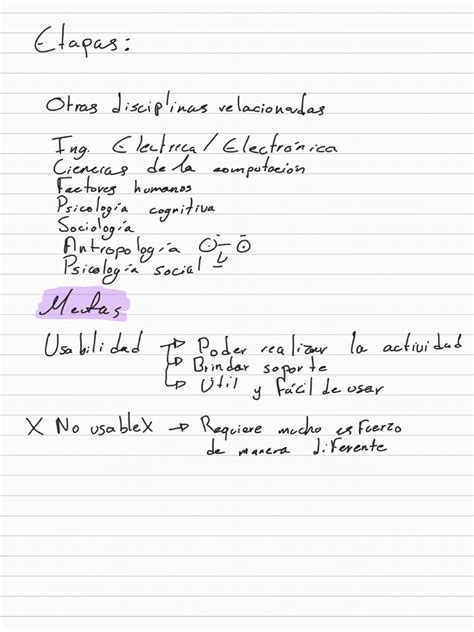 Etapas:
Otras disciplinas relacionadas
Ing. Electrica / Electrónica
Ciencias de la computación
Factores humanos
Psicología cognitiva
Sociología
Antropología
Psicología social
Metas
Usabilidad → Poder realizar la actividad
→ Brindar soporte
→ Útil y fácil de usar
X No usable X → Requiere mucho esfuerzo
de manera diferente